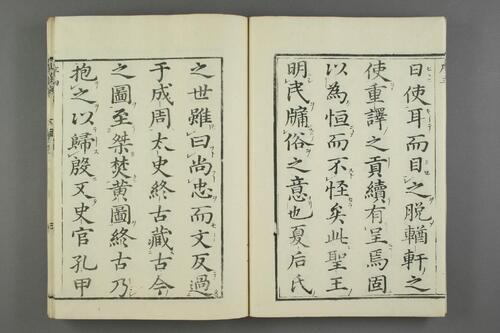 曰使耳而目之脫輶軒之
使重譯之貢續有呈焉固
以為恒而不恠矣此聖王
明民牖俗之意也夏后氏
之世雖曰尚忠而文反過
于成周太史終古藏古今
之圖至桀焚黄圖終古乃
抱之以歸殷又史官孔甲